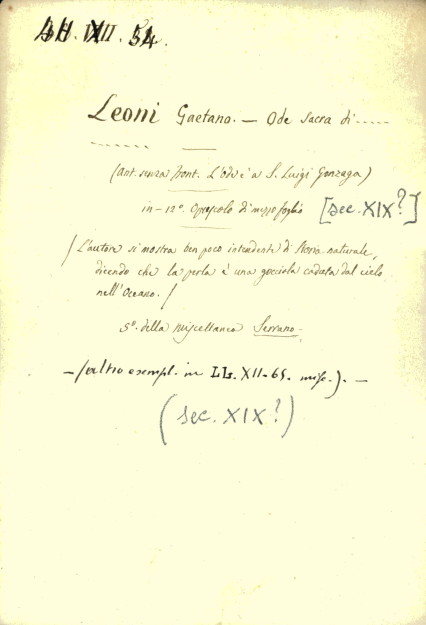 XII. 54.
Leoni Gaetano. — Ode sacra di -----
-------
(ant. senza front. L'Ode è a S. Luigi Gonzaga)
in-12º. Opuscolo di mezzo foglio [sec. XIX?]
/ L'autore si mostra ben poco intendente di Storia naturale,
dicendo che la perla è una gocciola caduta dal cielo
nell'Oceano. /
5º. della Miscellanea Serrano.
— (altro exempl. in LL. XII-65. misc.). —
(sec. XIX?)